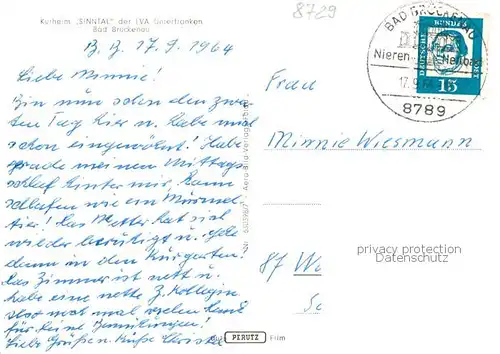 8729
Kurheim „SINNTAL" der LVA Unterfranken
Bad Brückenau
B. B. 17.9.1964
Liebe Minnie!
Bin nun schon den zwei-
ten Tag hier u. habe mich
schon eingewöhnt! Habe
gerade meinen Mittags-
schlaf hinter mir, kann
schlafen wie ein Murmel-
tier! Das Wetter hat sich
wieder beruhigt u. gehe
dann in den Kurgarten!
Das Zimmer ist nett u.
habe eine nette Z. Kollegin
mal vielen Dank
für Deine Bemühungen!
Liebe Grüße u. Küsse Christa
BAD BRÜCKENAU
Nieren- Heilbad
17.9.64
8789
DEUTSCHE BUNDESPOST
15
Frau
Minnie Wiesmann
privacy protection
Datenschutz
87 W
PERUTZ Film